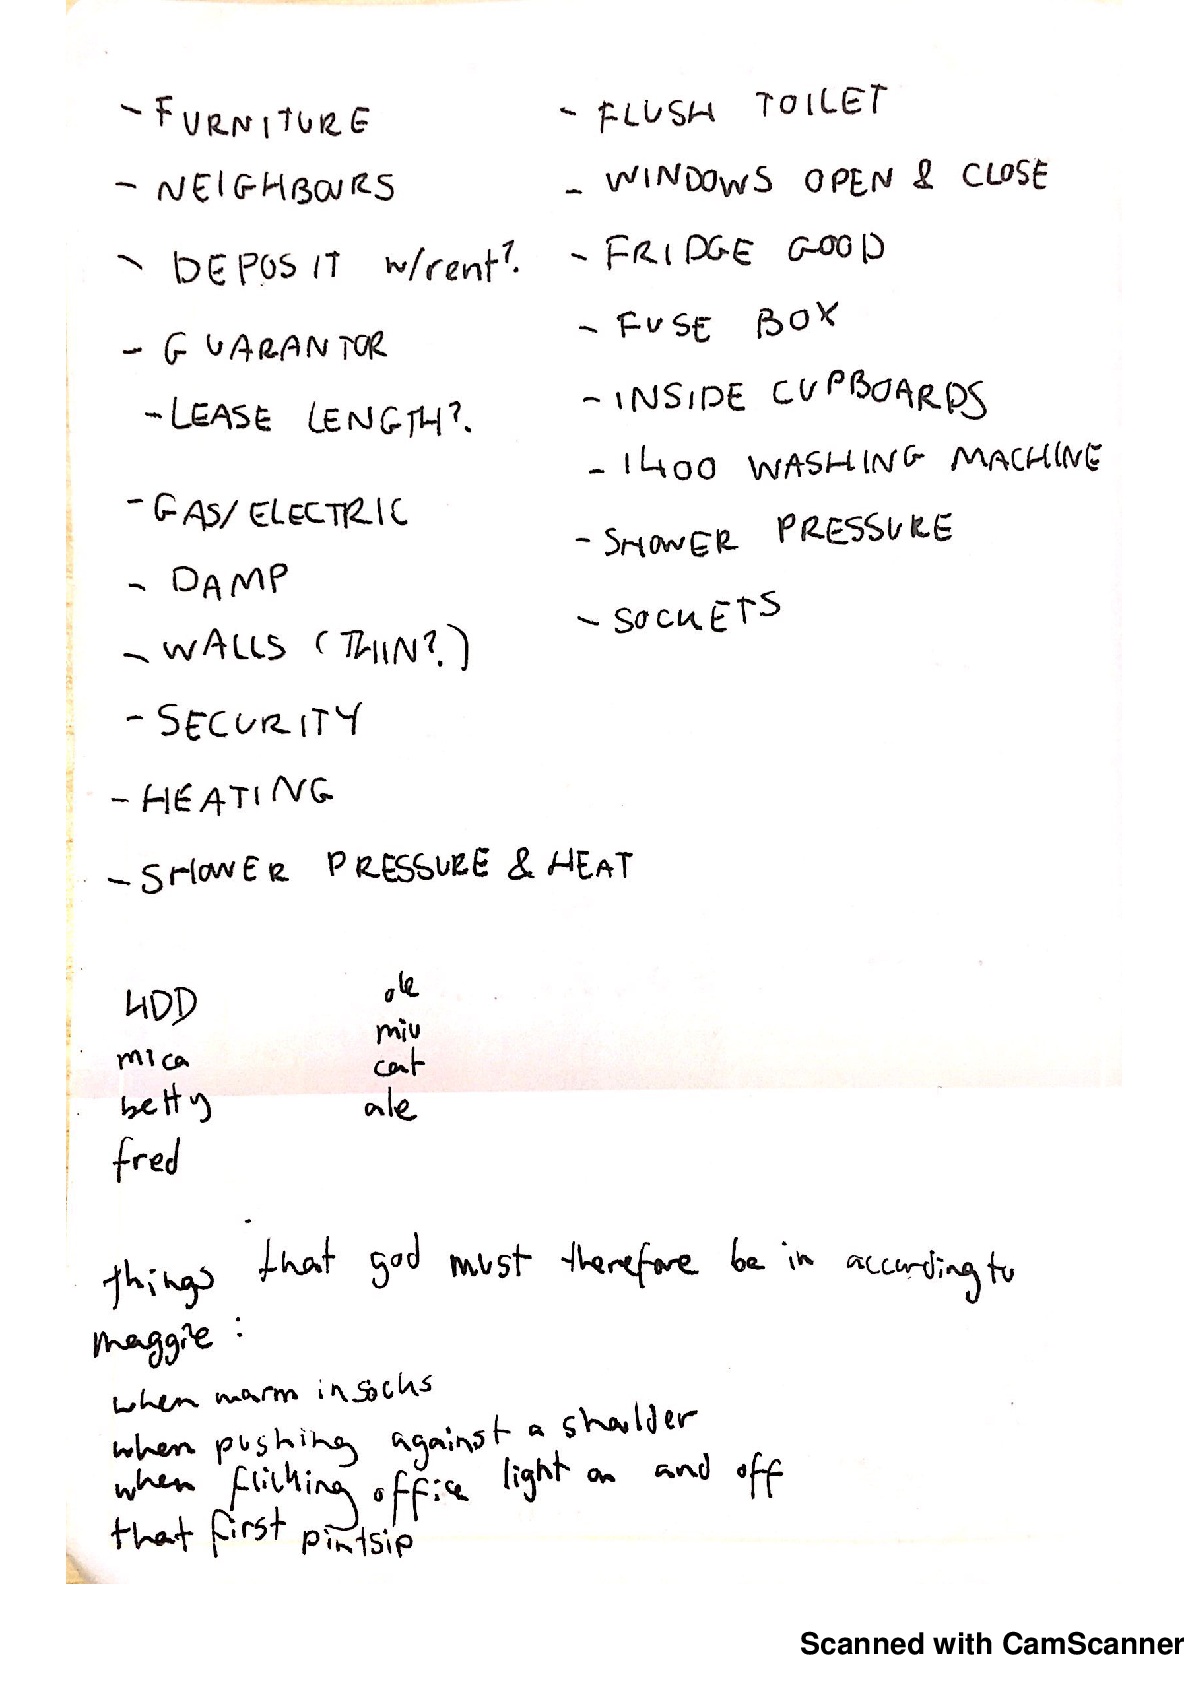 - FURNITURE
- NEIGHBOURS
- DEPOSIT w/rent?.
- GUARANTOR
- LEASE LENGTH?.
- GAS/ELECTRIC
- DAMP
- WALLS (THIN?.)
- SECURITY
- HEATING
- SHOWER PRESSURE & HEAT
- FLUSH TOILET
- WINDOWS OPEN & CLOSE
- FRIDGE GOOD
- FUSE BOX
- INSIDE CUPBOARDS
- 1400 WASHING MACHINE
- SHOWER PRESSURE
- SOCKETS
HDD
mica
betty
fred
ole
miu
cat
ale
things that god must therefore be in according to
maggie:
when warm in socks
when pushing against a shoulder
when flicking office light on and off
that first pintsip
Scanned with CamScanner